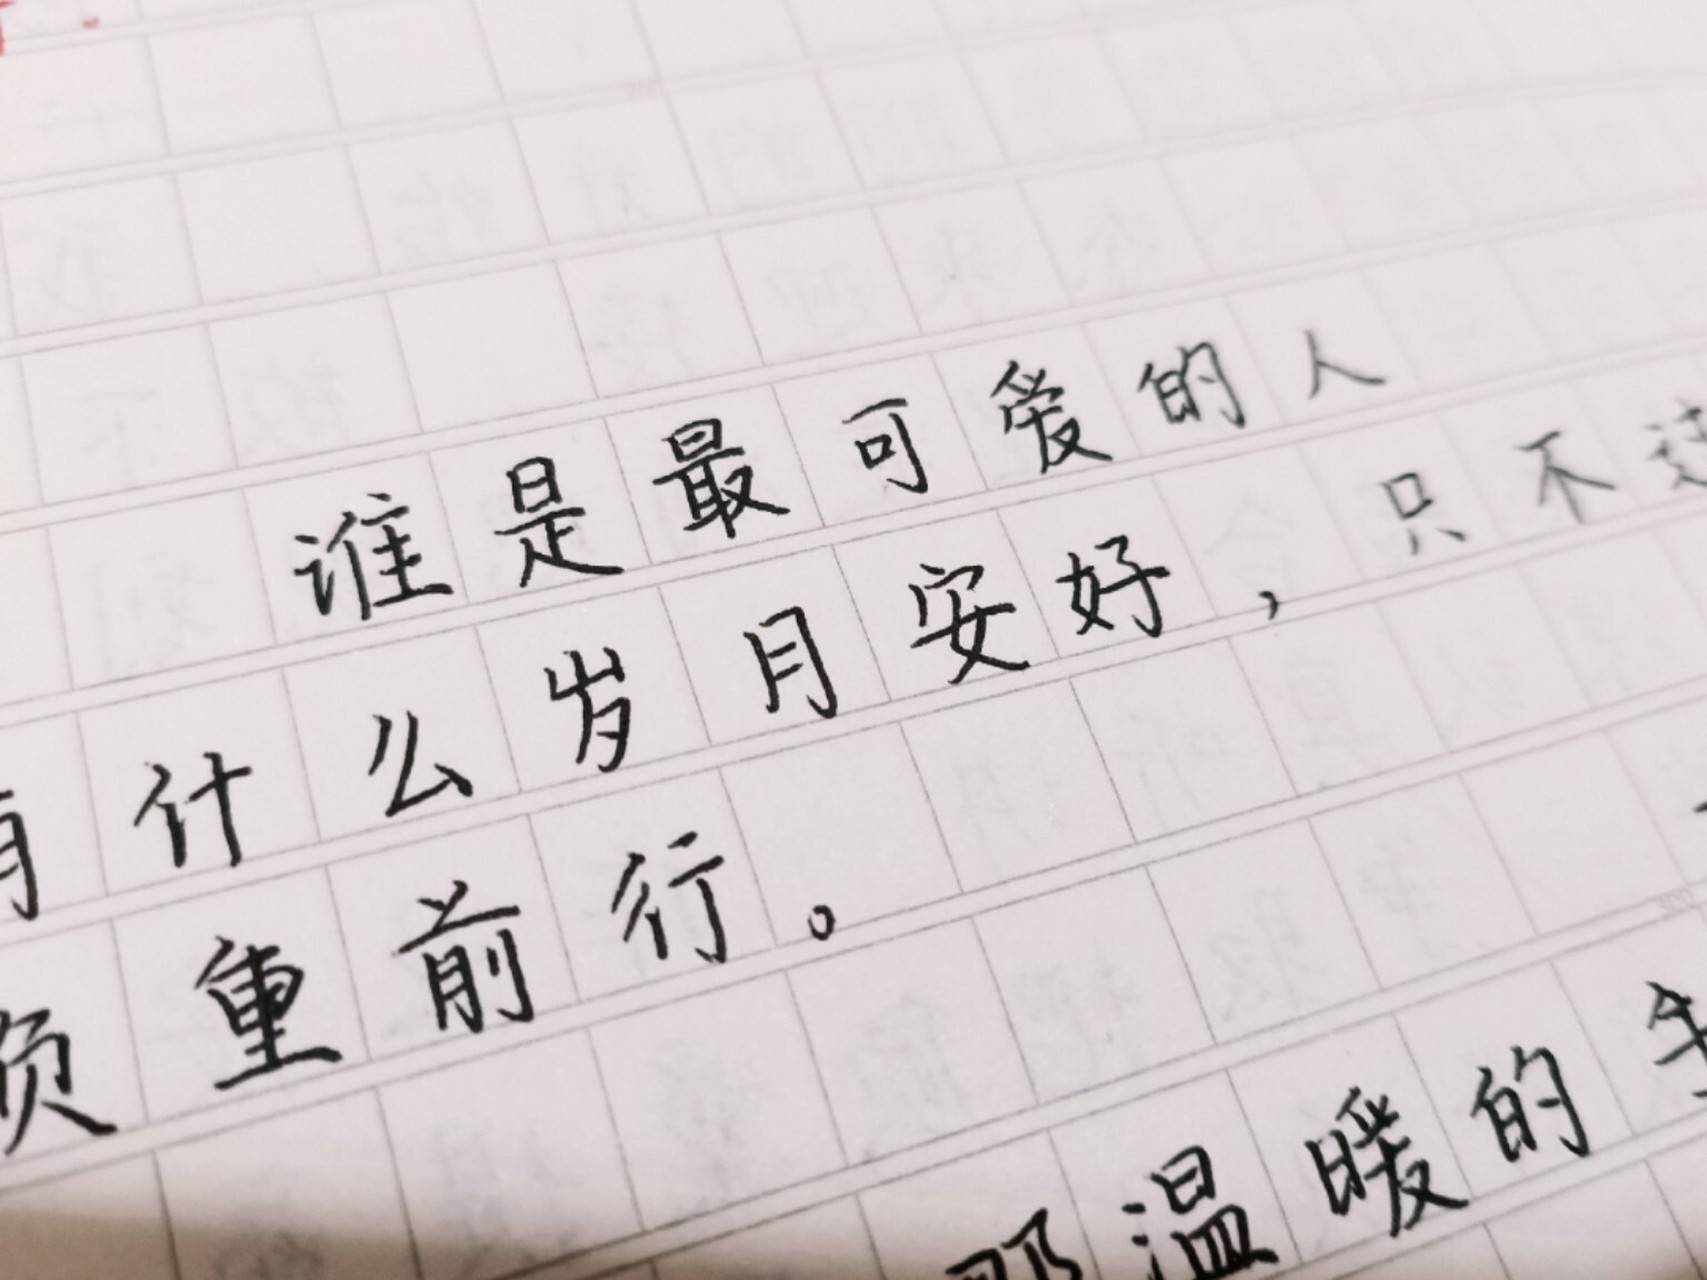 谁是最可爱的人
有什么岁月安好，只不过
负重前行。
那温暖的